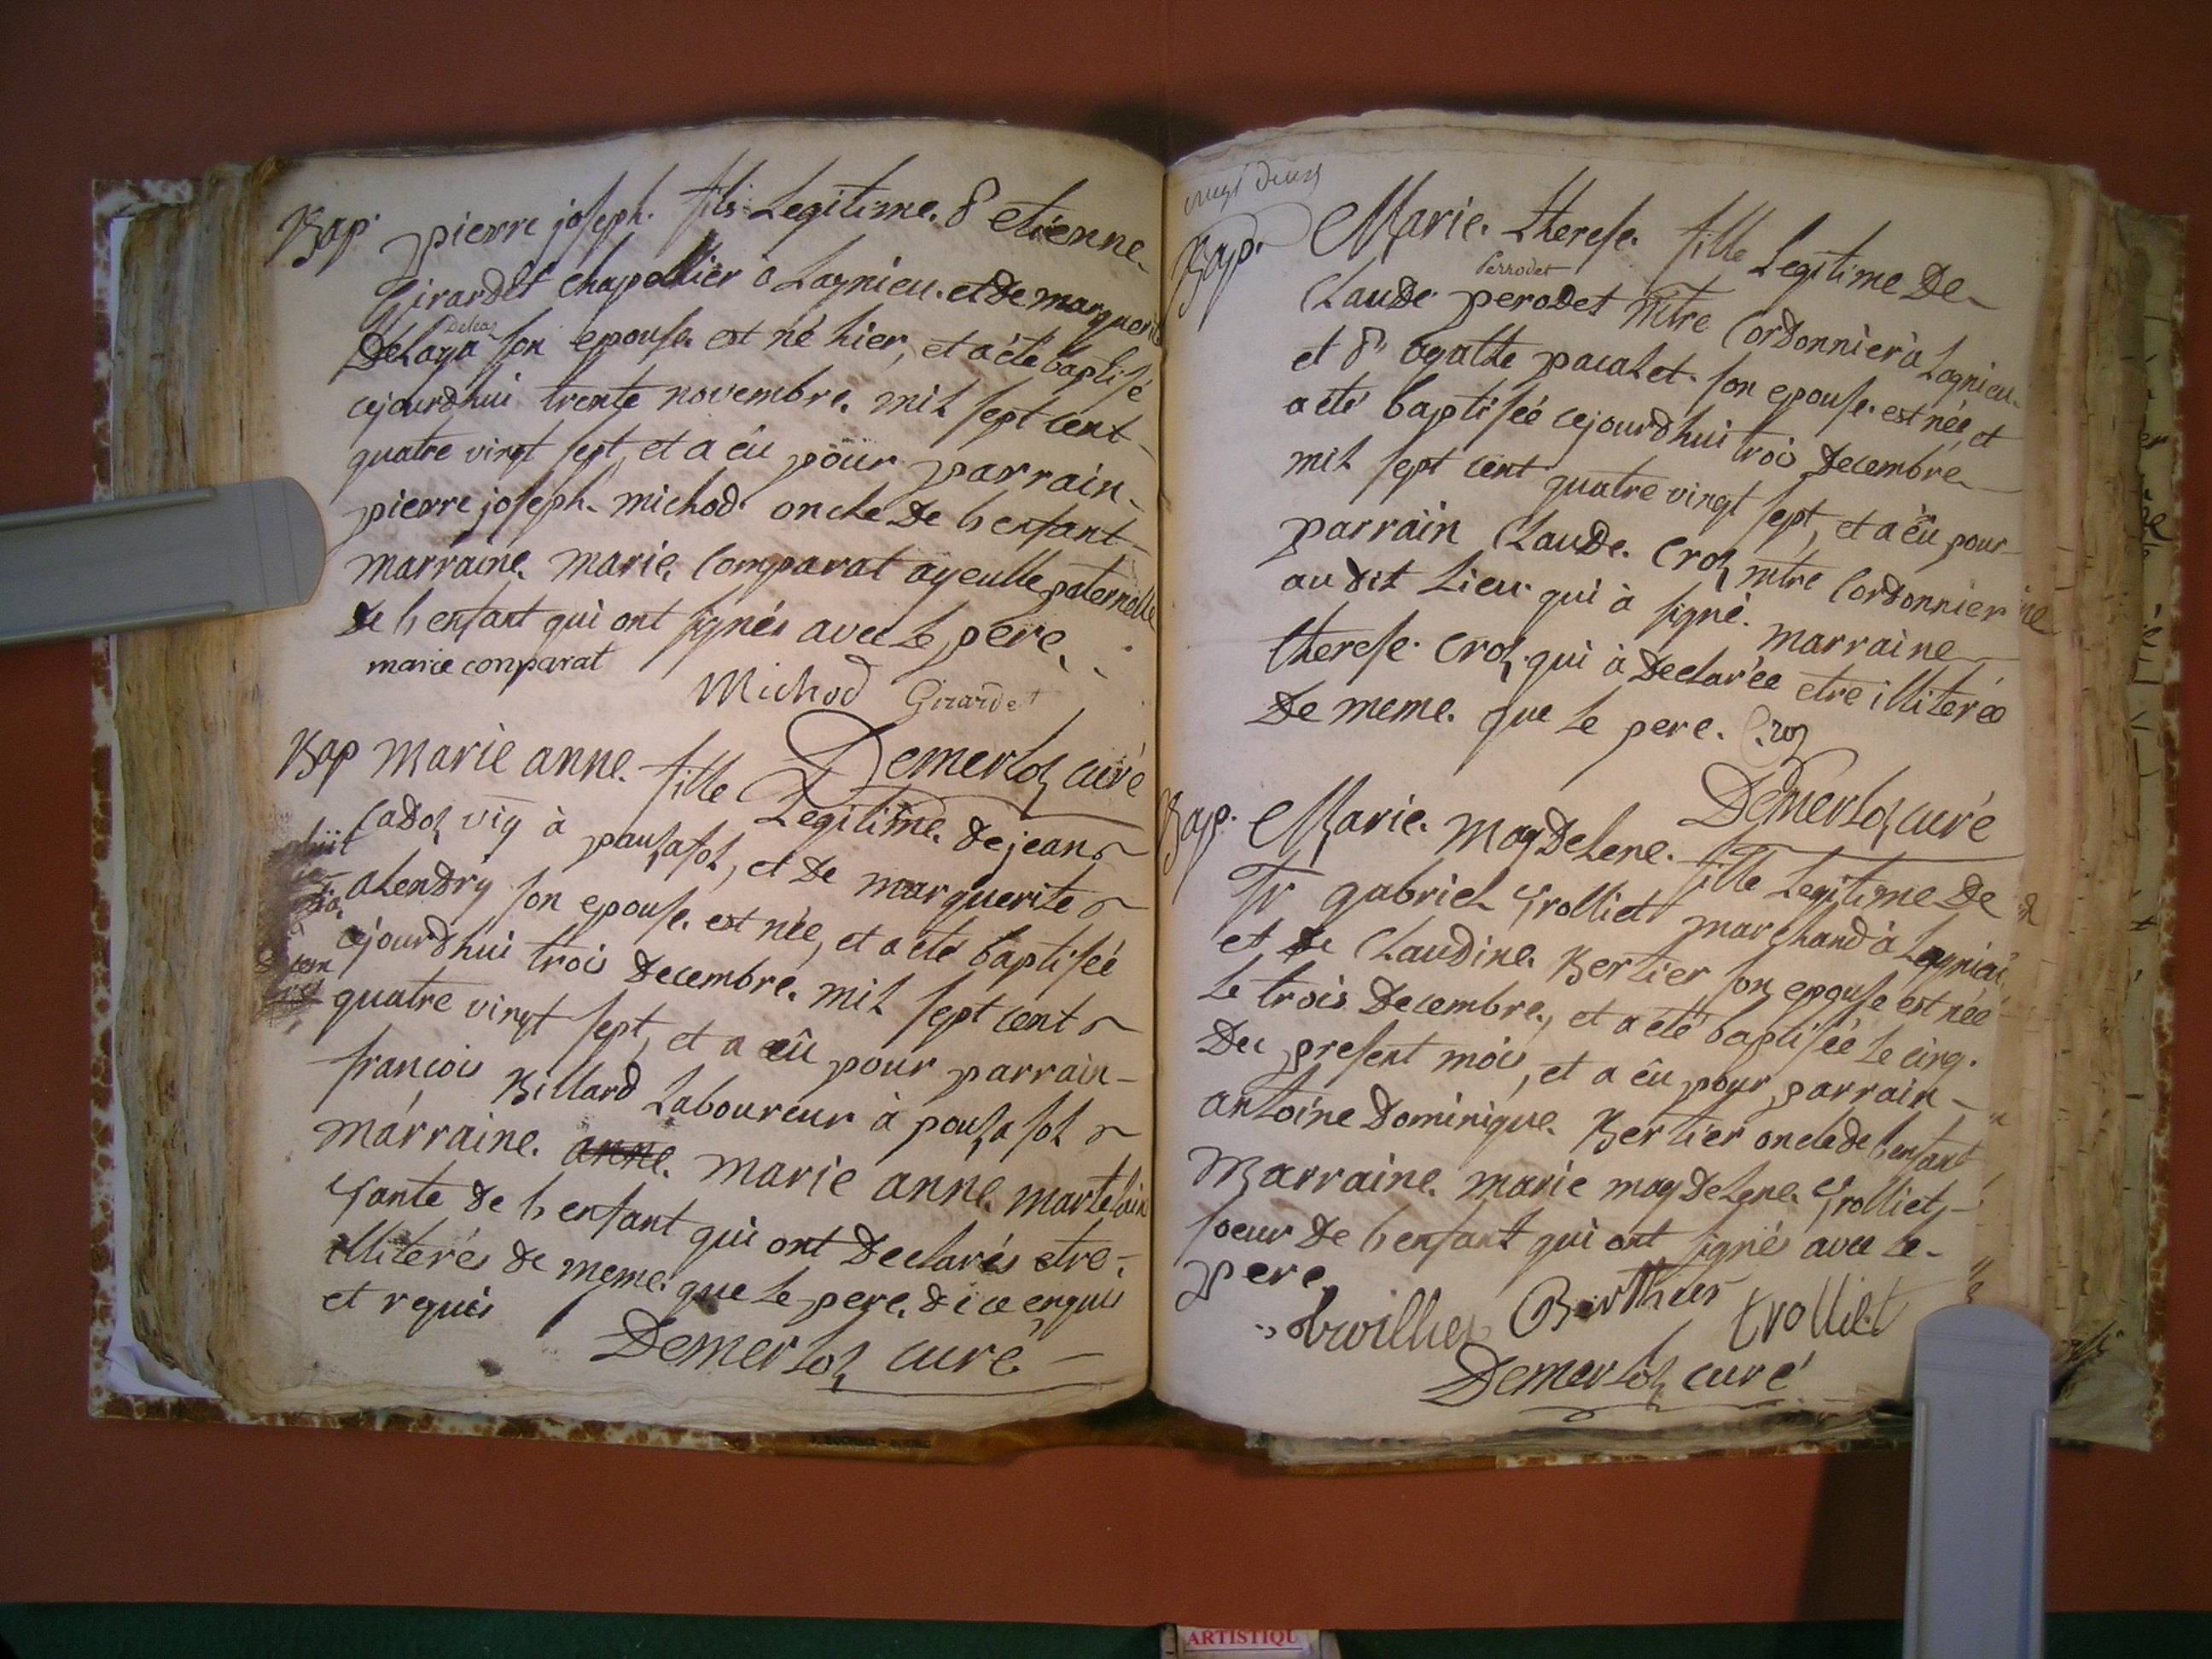 Bap. pierre joseph. fils Legitime. d' etienne
Girardet chapellier à Lagnieu. et de marguerite
Delaya son epouse. est né hier, et a été baptisé
cejourdhui trente novembre. mil sept cent
quatre vingt sept, et a eû pour parrain
pierre joseph. michod. oncle de l'enfant
marraine. marie. Comparat ayeulle paternelle
de l'enfant qui ont signés avec le père.
marie comparat
Michod Girardet
Demerloz curé
Bap marie anne. fille Legitime. de jean
Cadoz vig à pouzafol, et de marguerite
alendry son epouse. est née, et a été baptisée
cejourdhui trois decembre. mil sept cent
quatre vingt sept, et a eû pour parrain
françois Billard Laboureur à pouzafol
marraine. anne. marie anne. martelain
tante de l'enfant qui ont declarés etre
illiterés de meme. que le pere. de ce enquis
et requis
Demerloz curé
vingt deux
Bap. Marie. therese. fille Legitime de
Perrodet
Claude perodet mtre Cordonnier à Lagnieu.
et d' agathe pacalet. son epouse. est née, et
a été baptisée cejourdhui trois decembre
mil sept cent quatre vingt sept, et a eû pour
parrain Claude. Croz mtre Cordonnier
au dit Lieu. qui à signé. marraine
therese. Croz. qui à declarée etre illiterée
de meme. que le pere. Croz
Demerloz curé
Bap. Marie. magdelene. fille Legitime de
Sr gabriel Trolliet marchand à Lagnieu.
et de Claudine. Bertier son epouse est née
le trois decembre., et a été baptisée le cinq.
du present mois, et a eû pour parrain
antoine dominique. Bertier oncle de l'enfant
marraine. marie magdelene. Trolliet
soeur de l'enfant qui ont signés avec le
pere.
Berthier trolliet
Demerloz curé
ARTISTIQU